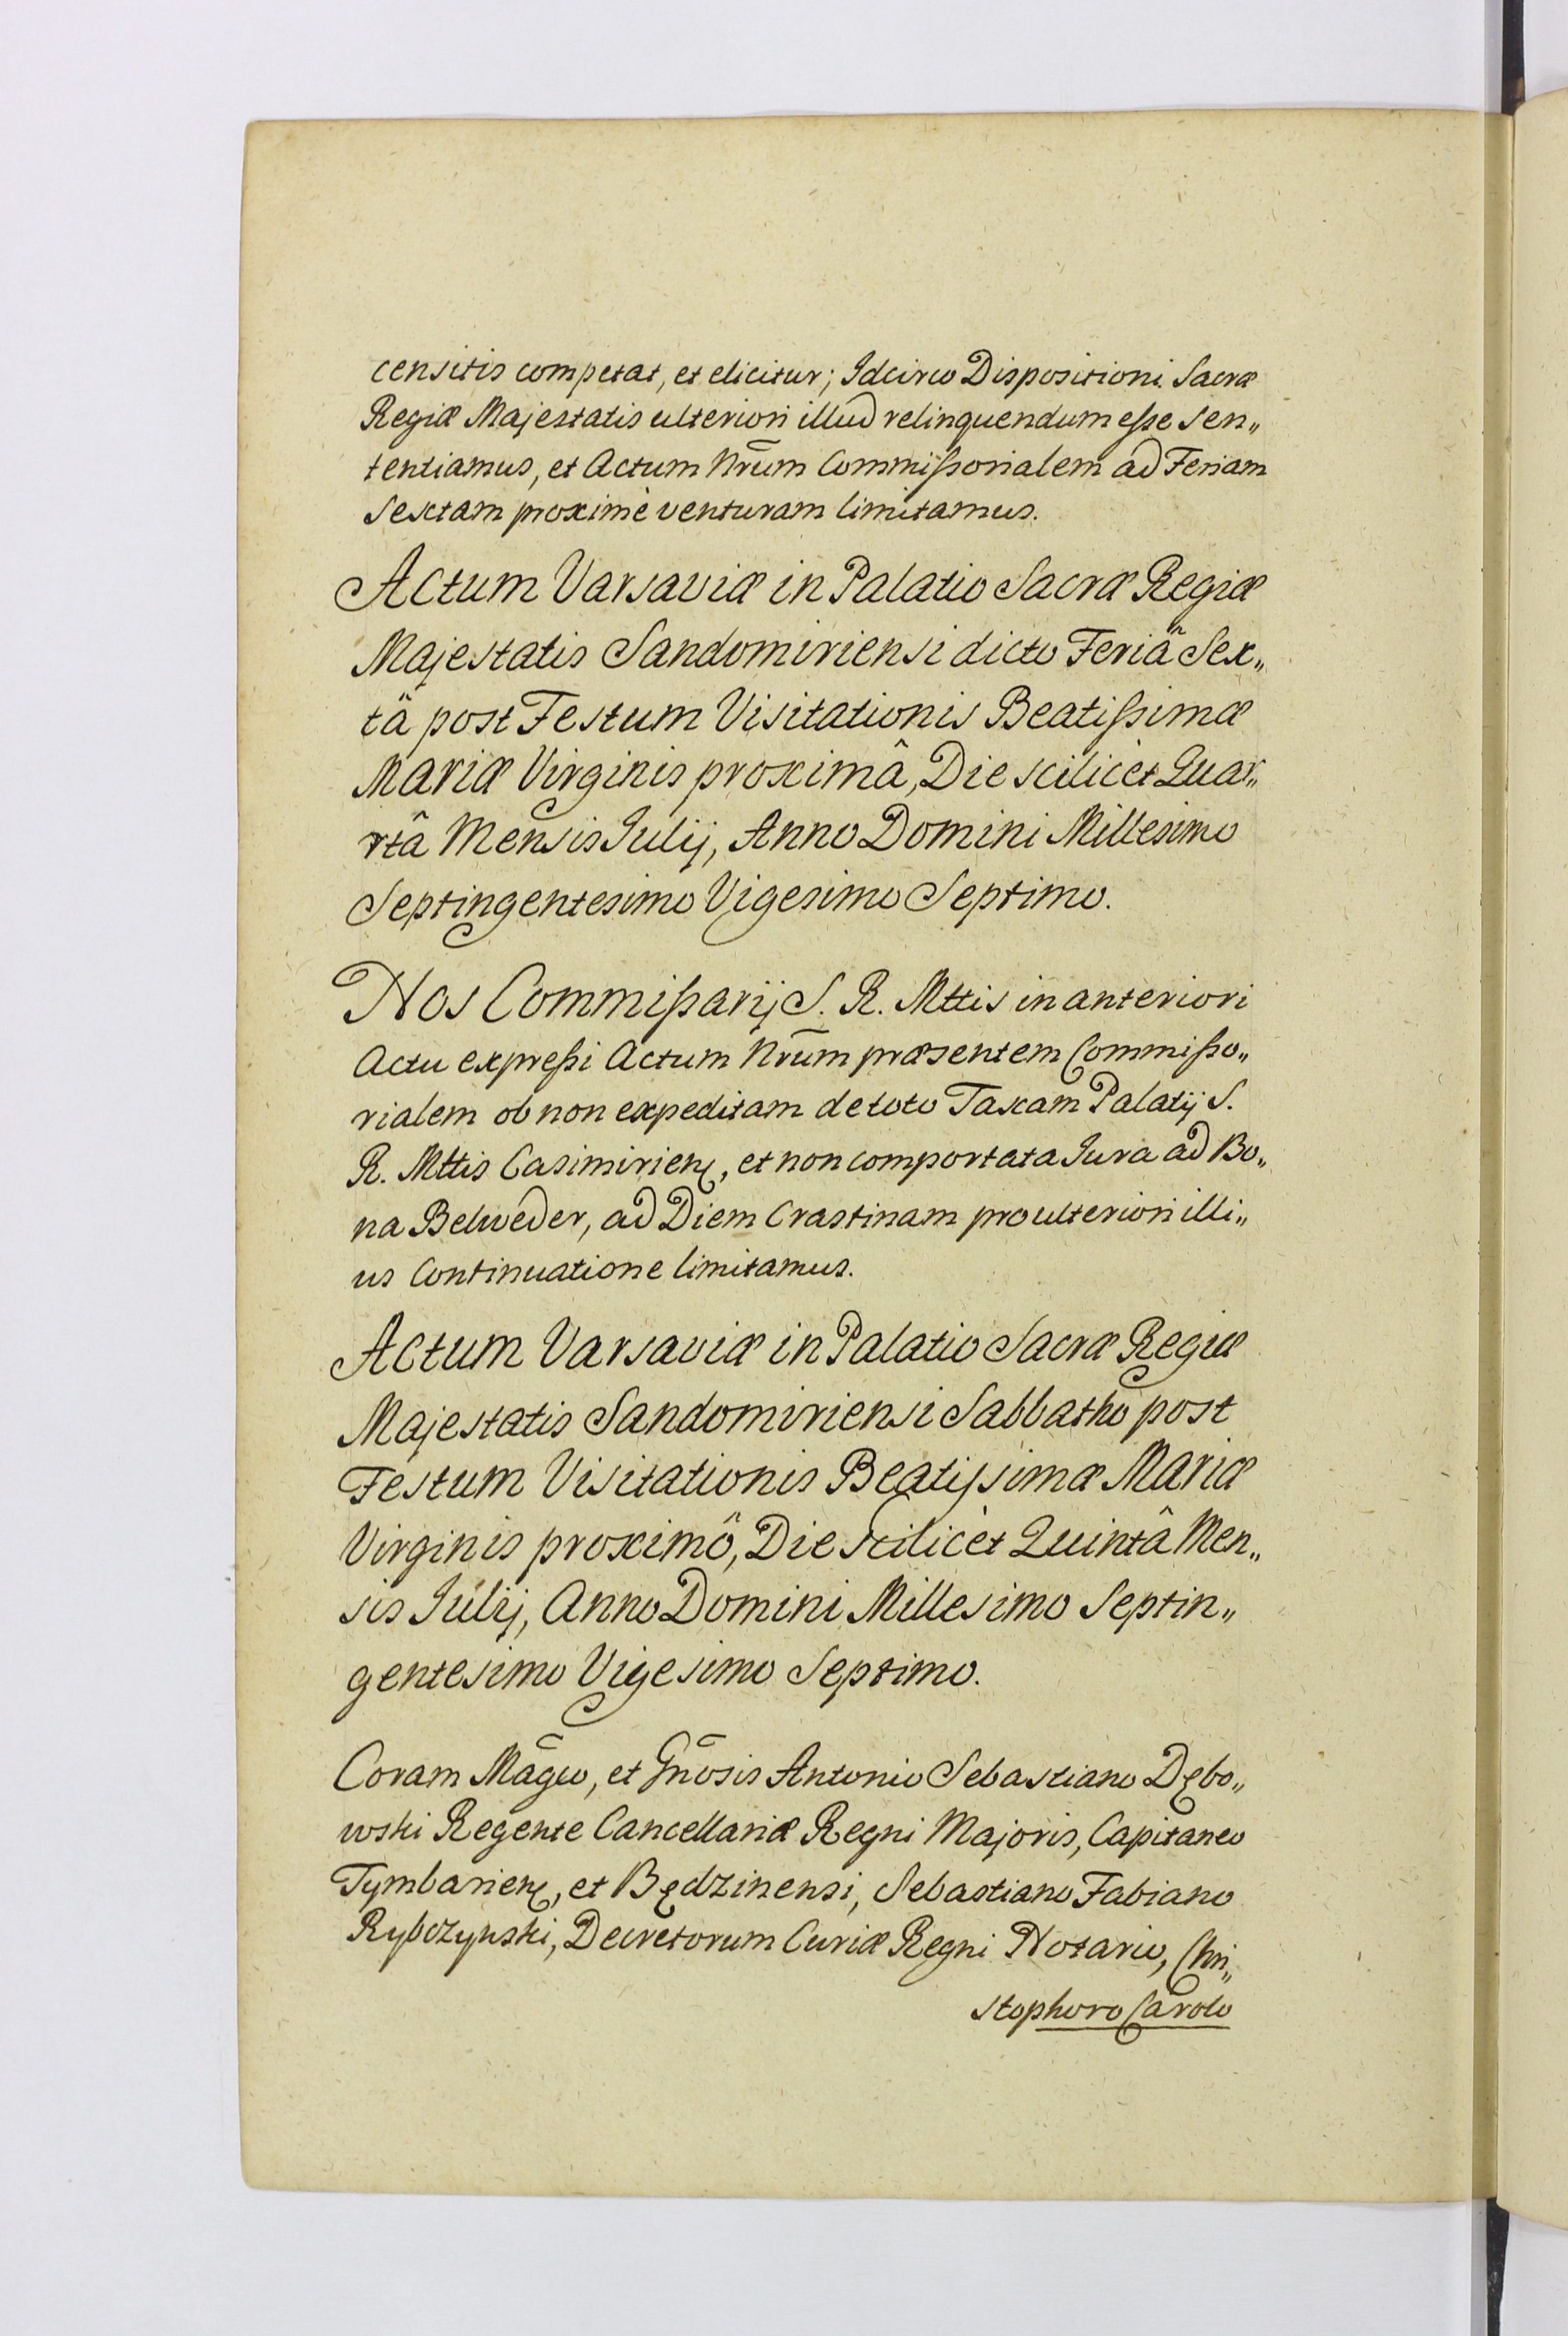 censitis competat, et elicitur; Idcirco Dispositioni Sacræ
Regiæ Majestatis ulteriori illud relinquendum eſse Sen„
tentiamus, et Actum Nrūm Commiſsorialem ad Feriam
Sextam proximè venturam limitamus.
Actum Varsaviæ in Palatio Sacræ Regiæ
Majestatis Sandomiriensi dicto Feriâ Sex„
tâ post Festum Visitationis Beatiſsimæ
Mariæ Virginis proximâ, Die scilicèt Quar„
rtâ Mensis Julij, Anno Domini Millesimo
Septingentesimo Vigesimo Septimo.
Nos Commiſsarij S. R. Mttis in anteriori
Actu expreſsi Actum Nrūm præsentem Commiſso„
rialem ob non expeditam de toto Taxam Palatij S.
R. Mttis Casimirienȩ, et non comportata Jura ad Bo„
na Belweder, ad Diem Crastinam pro ulteriori illi„
us Continuatione limitamus.
Actum Varsaviæ in Palatio Sacræ Regiæ
Majestatis Sandomiriensi Sabbatho post
Festum Visitationis Beatiſsimæ Mariæ
Virginis proximô, Die scilicèt Quintâ Men„
sis Julij, Anno Domini Millesimo Septin„
gentesimo Vigesimo Septimo.
Coram Māgco, et Gnōsis Antonio Sebastiano Dębo„
wski Regente Cancellariæ Regni Majoris, Capitaneo
Tymbarienȩ, et Będzinensi, Sebastiano Fabiano
Rybczynski, Decretorum Curiæ Regni Notario, Chri„
stophoro Carolo